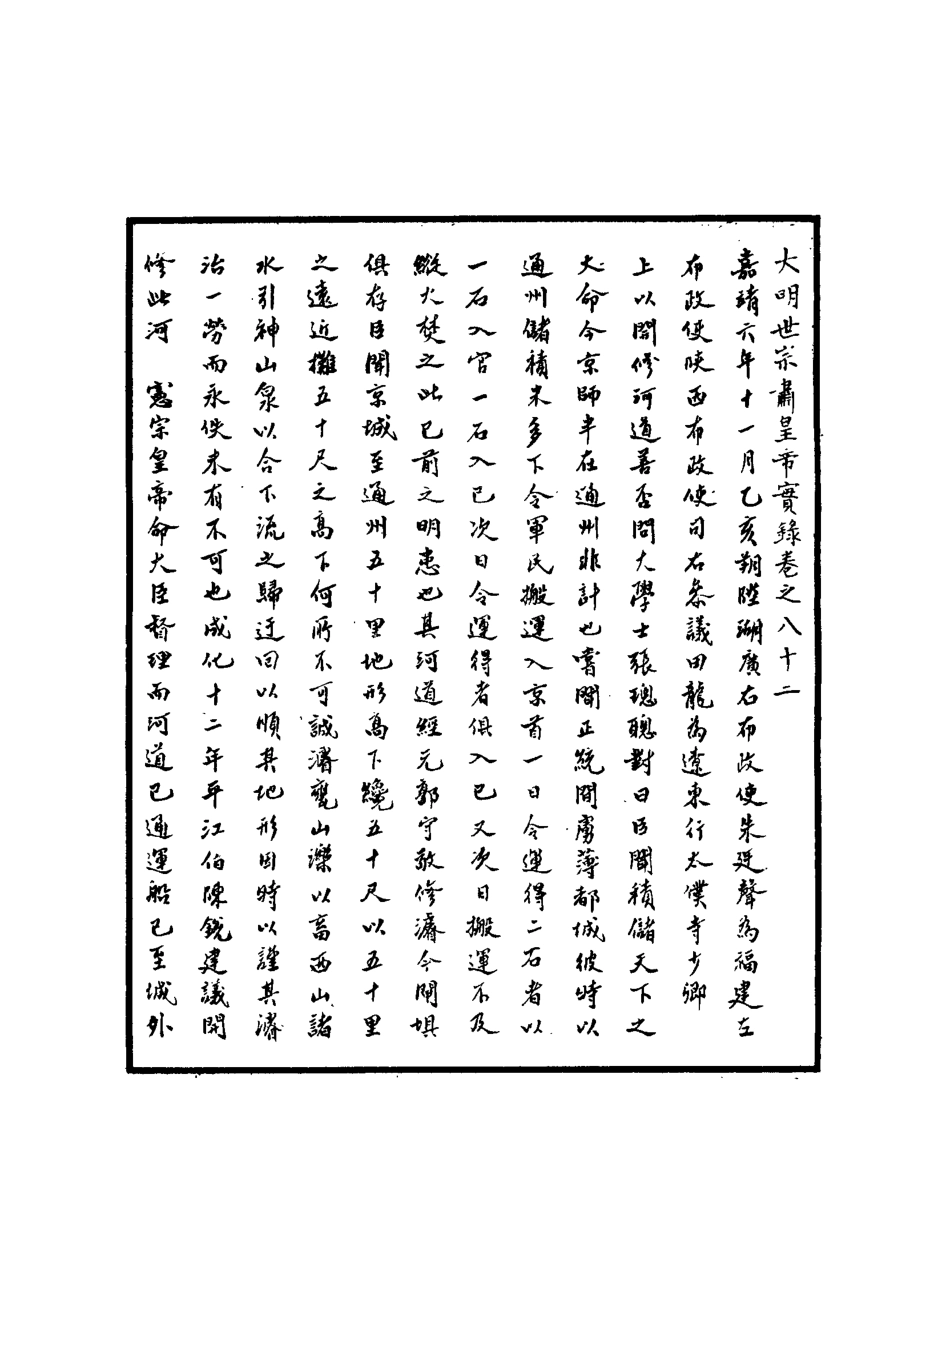 大明世宗肅皇帝實錄卷之八十二
嘉靖六年十一月乙亥朔陞湖廣右布政使朱廷聲為福建左
布政使陝西布政使司右叅議田龍為遼東行太僕寺少卿
上以閤修河道善否問大學士張璁璁對曰臣聞積儲天下之
大命今京師半在通州非計也嘗聞正統間虜薄都城彼時以
通州儲積米多下令軍民搬運入京首一日令運得二石者以
一石入官一石入已次日令運得者俱入已又次日搬運不及
縱火焚之此已前之明患也其河道經元郭守敬修濬今閘垻
俱存臣聞京城至通州五十里地形高下纔五十尺以五十里
之遠近攤五十尺之高下何所不可誠濬甕山濼以畜西山諸
水引神山泉以合下流之歸迂回以順其地形因時以謹其濬
治一勞而永佚未有不可也成化十二年平江伯陳銳建議開
修此河　憲宗皇帝命大臣督理而河道已通運船已至城外